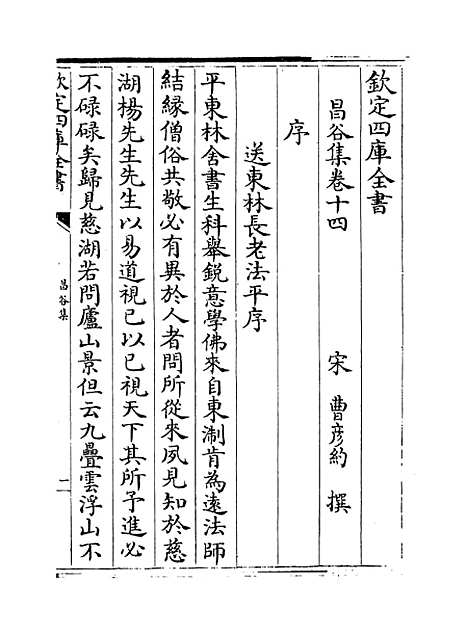 欽定四庫全書
昌谷集卷十四
宋 曹彦約 撰
序
送東林長老法平序
平東林舍書生科舉鋭意學佛來自東淛肯為逺法師
結縁僧俗共敬必有異於人者問所從來夙見知於慈
湖楊先生先生以易道視已以已視天下其所予進必
不碌碌矣歸見慈湖若問廬山景但云九疊雲浮山不
欽定四庫全書
昌谷集
二